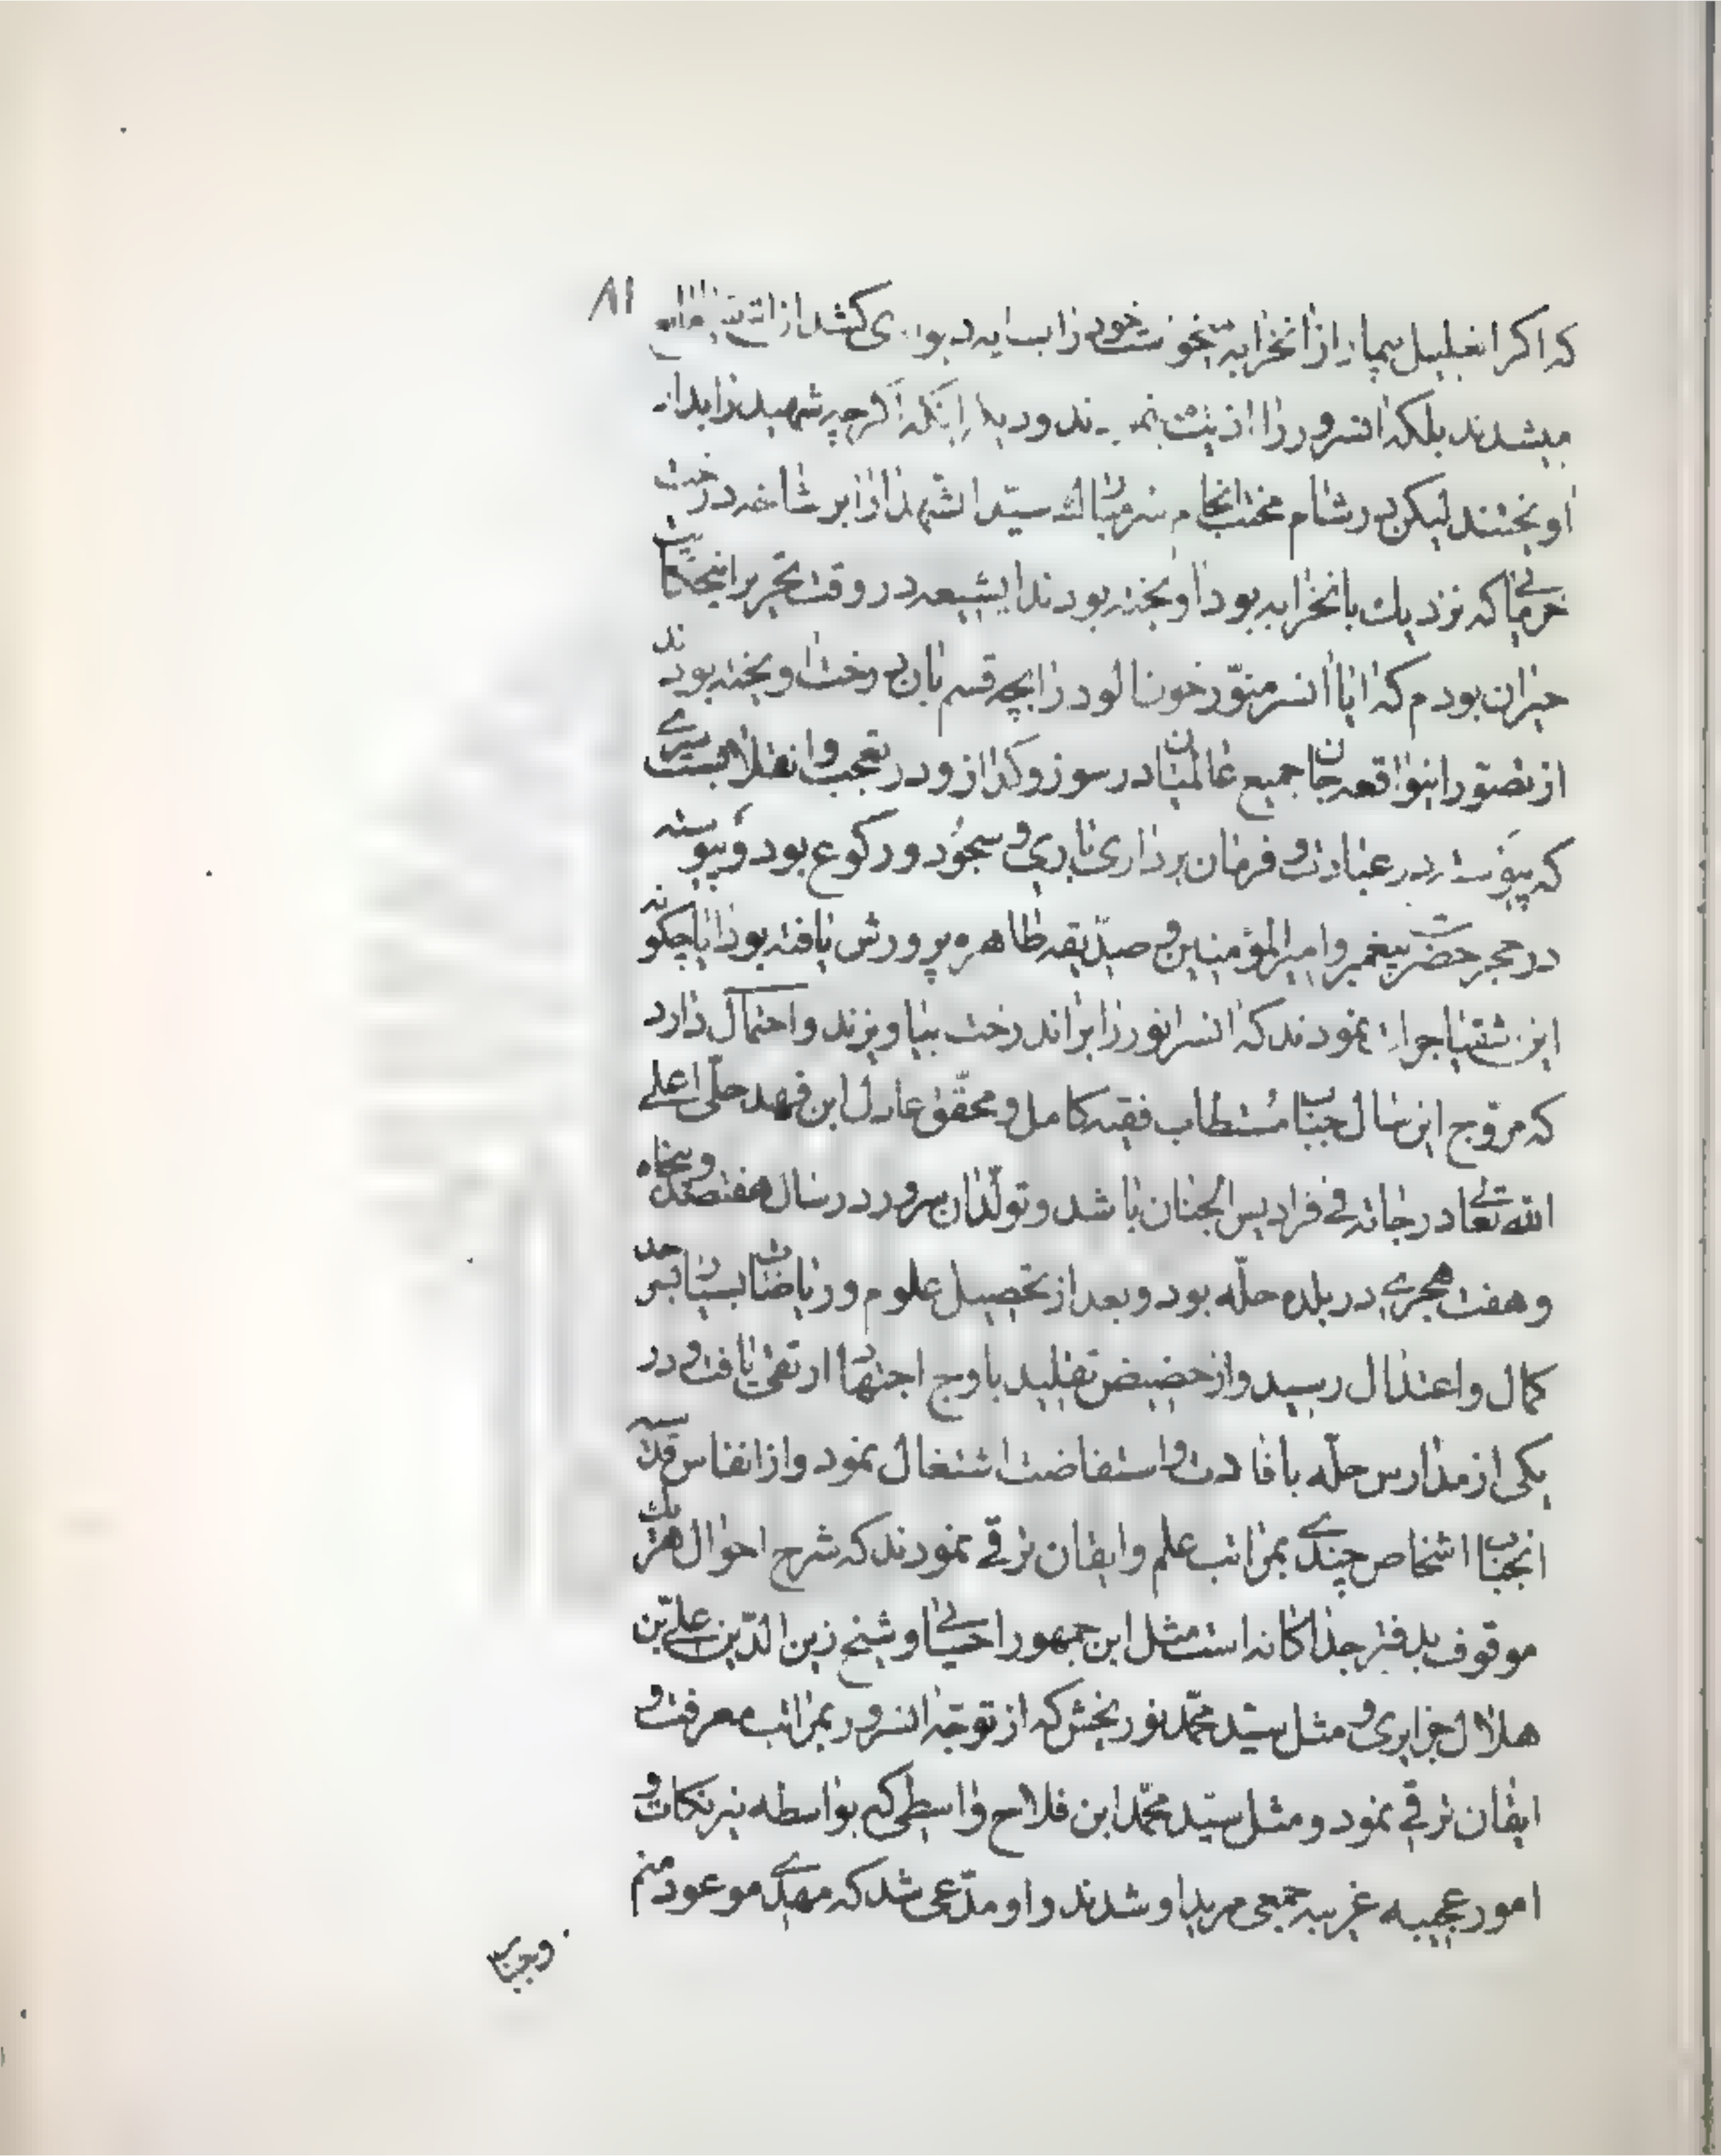 ۸۱
که اکر انعلیل بیمار از انخرابه بخونت خود را بسایه دیواری کشد از
میشدند بلکه انسرور را اذیت ند ود اینکه اکرچه شهید را بدار
اویختند لیکن در شام محنت انجام سر مبارك سید الشهدا را بر شاخه درخت
خرمائی که نزدیك بانخرابه بود اویخته بودند ایشیعه در وقت تحریر اینحکایت
حیران بودم که ایا انسر منور خون الود را بچه قسم بان درخت اویخته بودند
از تصور اینواقعه جان جمیع عالمیان در سوز وکداز و در تعجب وانقلابست سری
که پیوسته در عبادت و فرمان برداری باری و سجود ورکوع بود و پیوسته
در حجر حضرت پیغمبر وامیرالمؤمنین و صدیقه طاهره پرورش یافته بود ایا چکونه
این اشقیا جرات نمودند که انسر انور را بر اندرخت بیاویزند واحتمال دارد
که مروج این سال جناب مستطاب فقیه کامل و محقق عادل ابن فهد حلی اعلی
الله تعالی درجاته فی فرادیس الجنان باشد و تولد ان سرور در سال هفتصد و پنجاه
و هفت هجری در بلده حله بود و بعد از تحصیل علوم و ریاضات بسیار بسر حد
کمال واعتدال رسید واز حضیض تقلید باوج اجتهاد ارتقی یافت و در
یکی از مدارس حله بافادت و استفاضت اشتغال نمود واز انفاس قدسیه
انجناب اشخاص چندی بمراتب علم وایقان ترقی نمودند که شرح احوال هر یك
موقوف بدفتر جداکانه است مثل ابن جمهور احسائی و شیخ زین الدین علی بن
هلال جزایری و مثل سید محمد نور بخش که از توجه انسرور بمراتب معرفت و
ایقان ترقی نمود و مثل سید محمد ابن فلاح واسطی که بواسطه نیرنکات و
امور عجیبه غریبه جمعی مرید او شدند و او مدعی شد که مهدی موعود منم